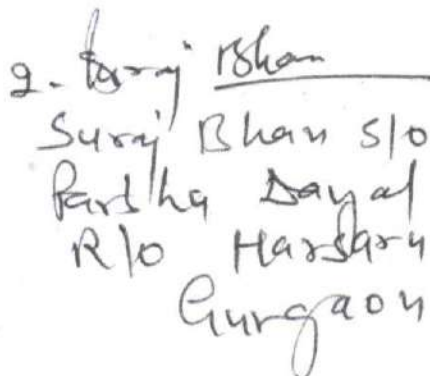 2. Suraj Bhan
Suraj Bhan S/O
Parbha Dayal
R/O Harsaru
Gurgaon